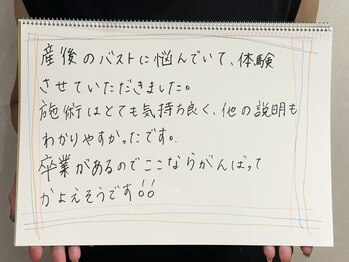 産後のバストに悩んでいて、体験
させていただきました。
施術はとても気持ち良く、他の説明も
わかりやすかったです。
卒業があるのでここならがんばって
かよえそうです!!